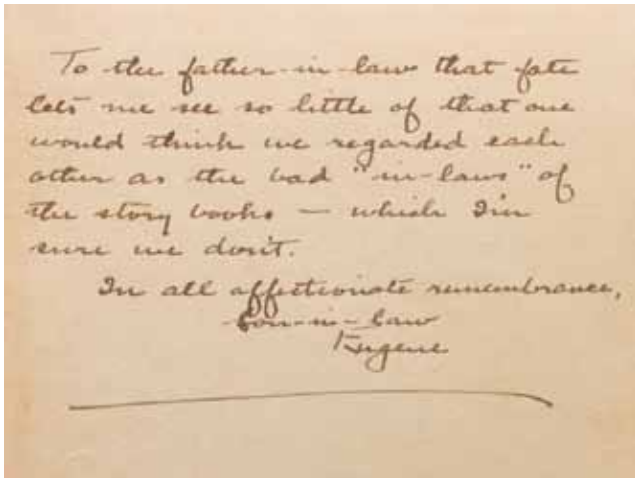 To the father-in-law that fate
lets me see so little of that one
would think we regarded each
other as the bad "in-laws" of
the story books — which I'm
sure we don't.
In all affectionate remembrance,
Son-in-law
Eugene